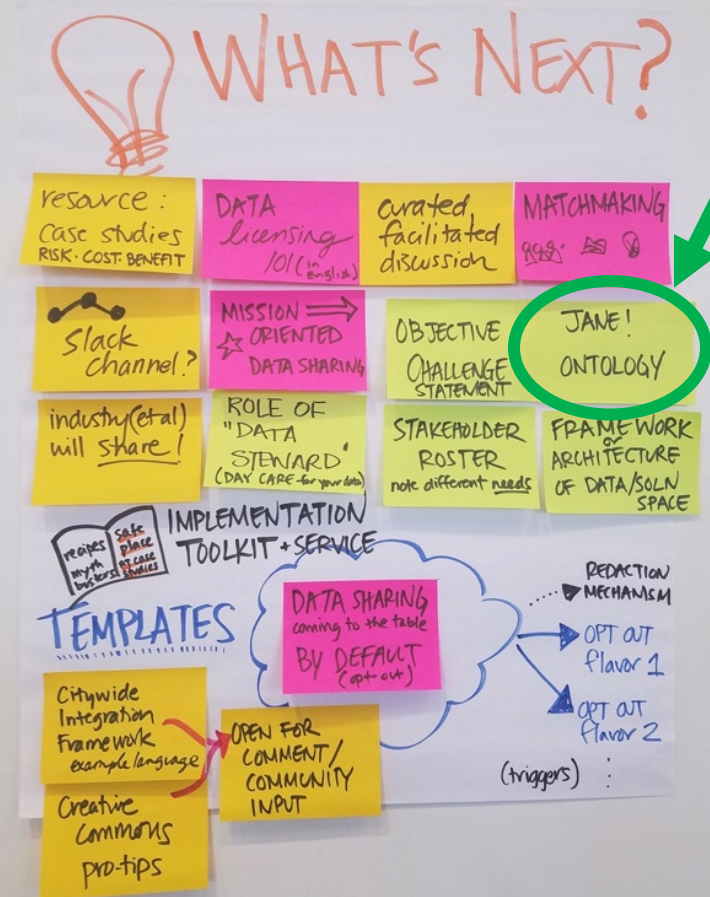 WHAT'S NEXT?
resource:
case studies
RISK·COST·BENEFIT
DATA
licensing
101 (in
english)
curated,
facilitated
discussion
MATCHMAKING
Slack
Channel?
MISSION
ORIENTED
DATA SHARING
OBJECTIVE
CHALLENGE
STATEMENT
JANE!
ONTOLOGY
industry(et al)
will share!
ROLE OF
"DATA
STEWARD"
(DAY CARE for your data)
STAKEHOLDER
ROSTER
note different needs
FRAMEWORK
or
ARCHITECTURE
OF DATA/SOLN
SPACE
recipes
myth
busters
safe
place
case
studies
IMPLEMENTATION
TOOLKIT + SERVICE
TEMPLATES
DATA SHARING
coming to the table
BY DEFAULT
(opt-out)
REDACTION
MECHANISM
OPT OUT
flavor 1
OPT OUT
flavor 2
(triggers)
Citywide
Integration
Framework
example language
OPEN FOR
COMMENT/
COMMUNITY
INPUT
Creative
commons
pro-tips